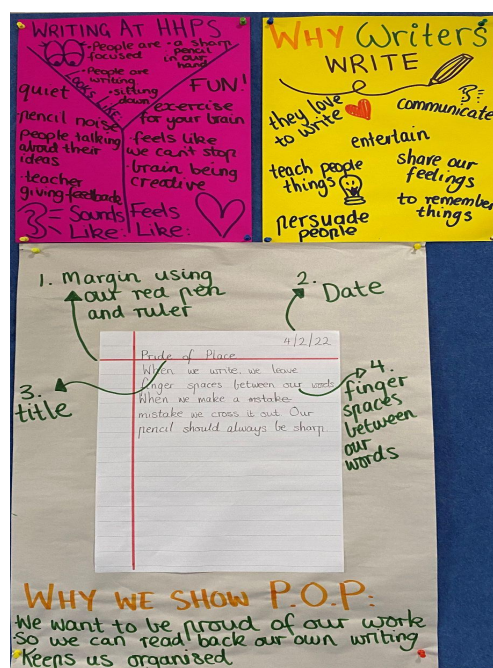 WRITING AT HHPS
People are
focused
a sharp
pencil
in our
hand
People are
writing
sitting
down
LOOKS LIKE:
FUN!
quiet
pencil noise
people talking
about their
ideas
teacher
giving feedback
Sounds
Like:
exercise
for your brain
feels like
we can't stop
brain being
creative
Feels
Like:
WHY Writers
WRITE
they love
to write
communicate
entertain
teach people
things
share our
feelings
to remember
things
persuade
people
1. Margin using
our red pen
and ruler
2. Date
4/2/22
Pride of Place
When we write, we leave
finger spaces between our words
When we make a mistake
mistake we cross it out. Our
pencil should always be sharp.
3.
title
4.
finger
spaces
between
our
words
WHY WE SHOW P.O.P:
We want to be proud of our work
So we can read back our own writing
Keeps us organised